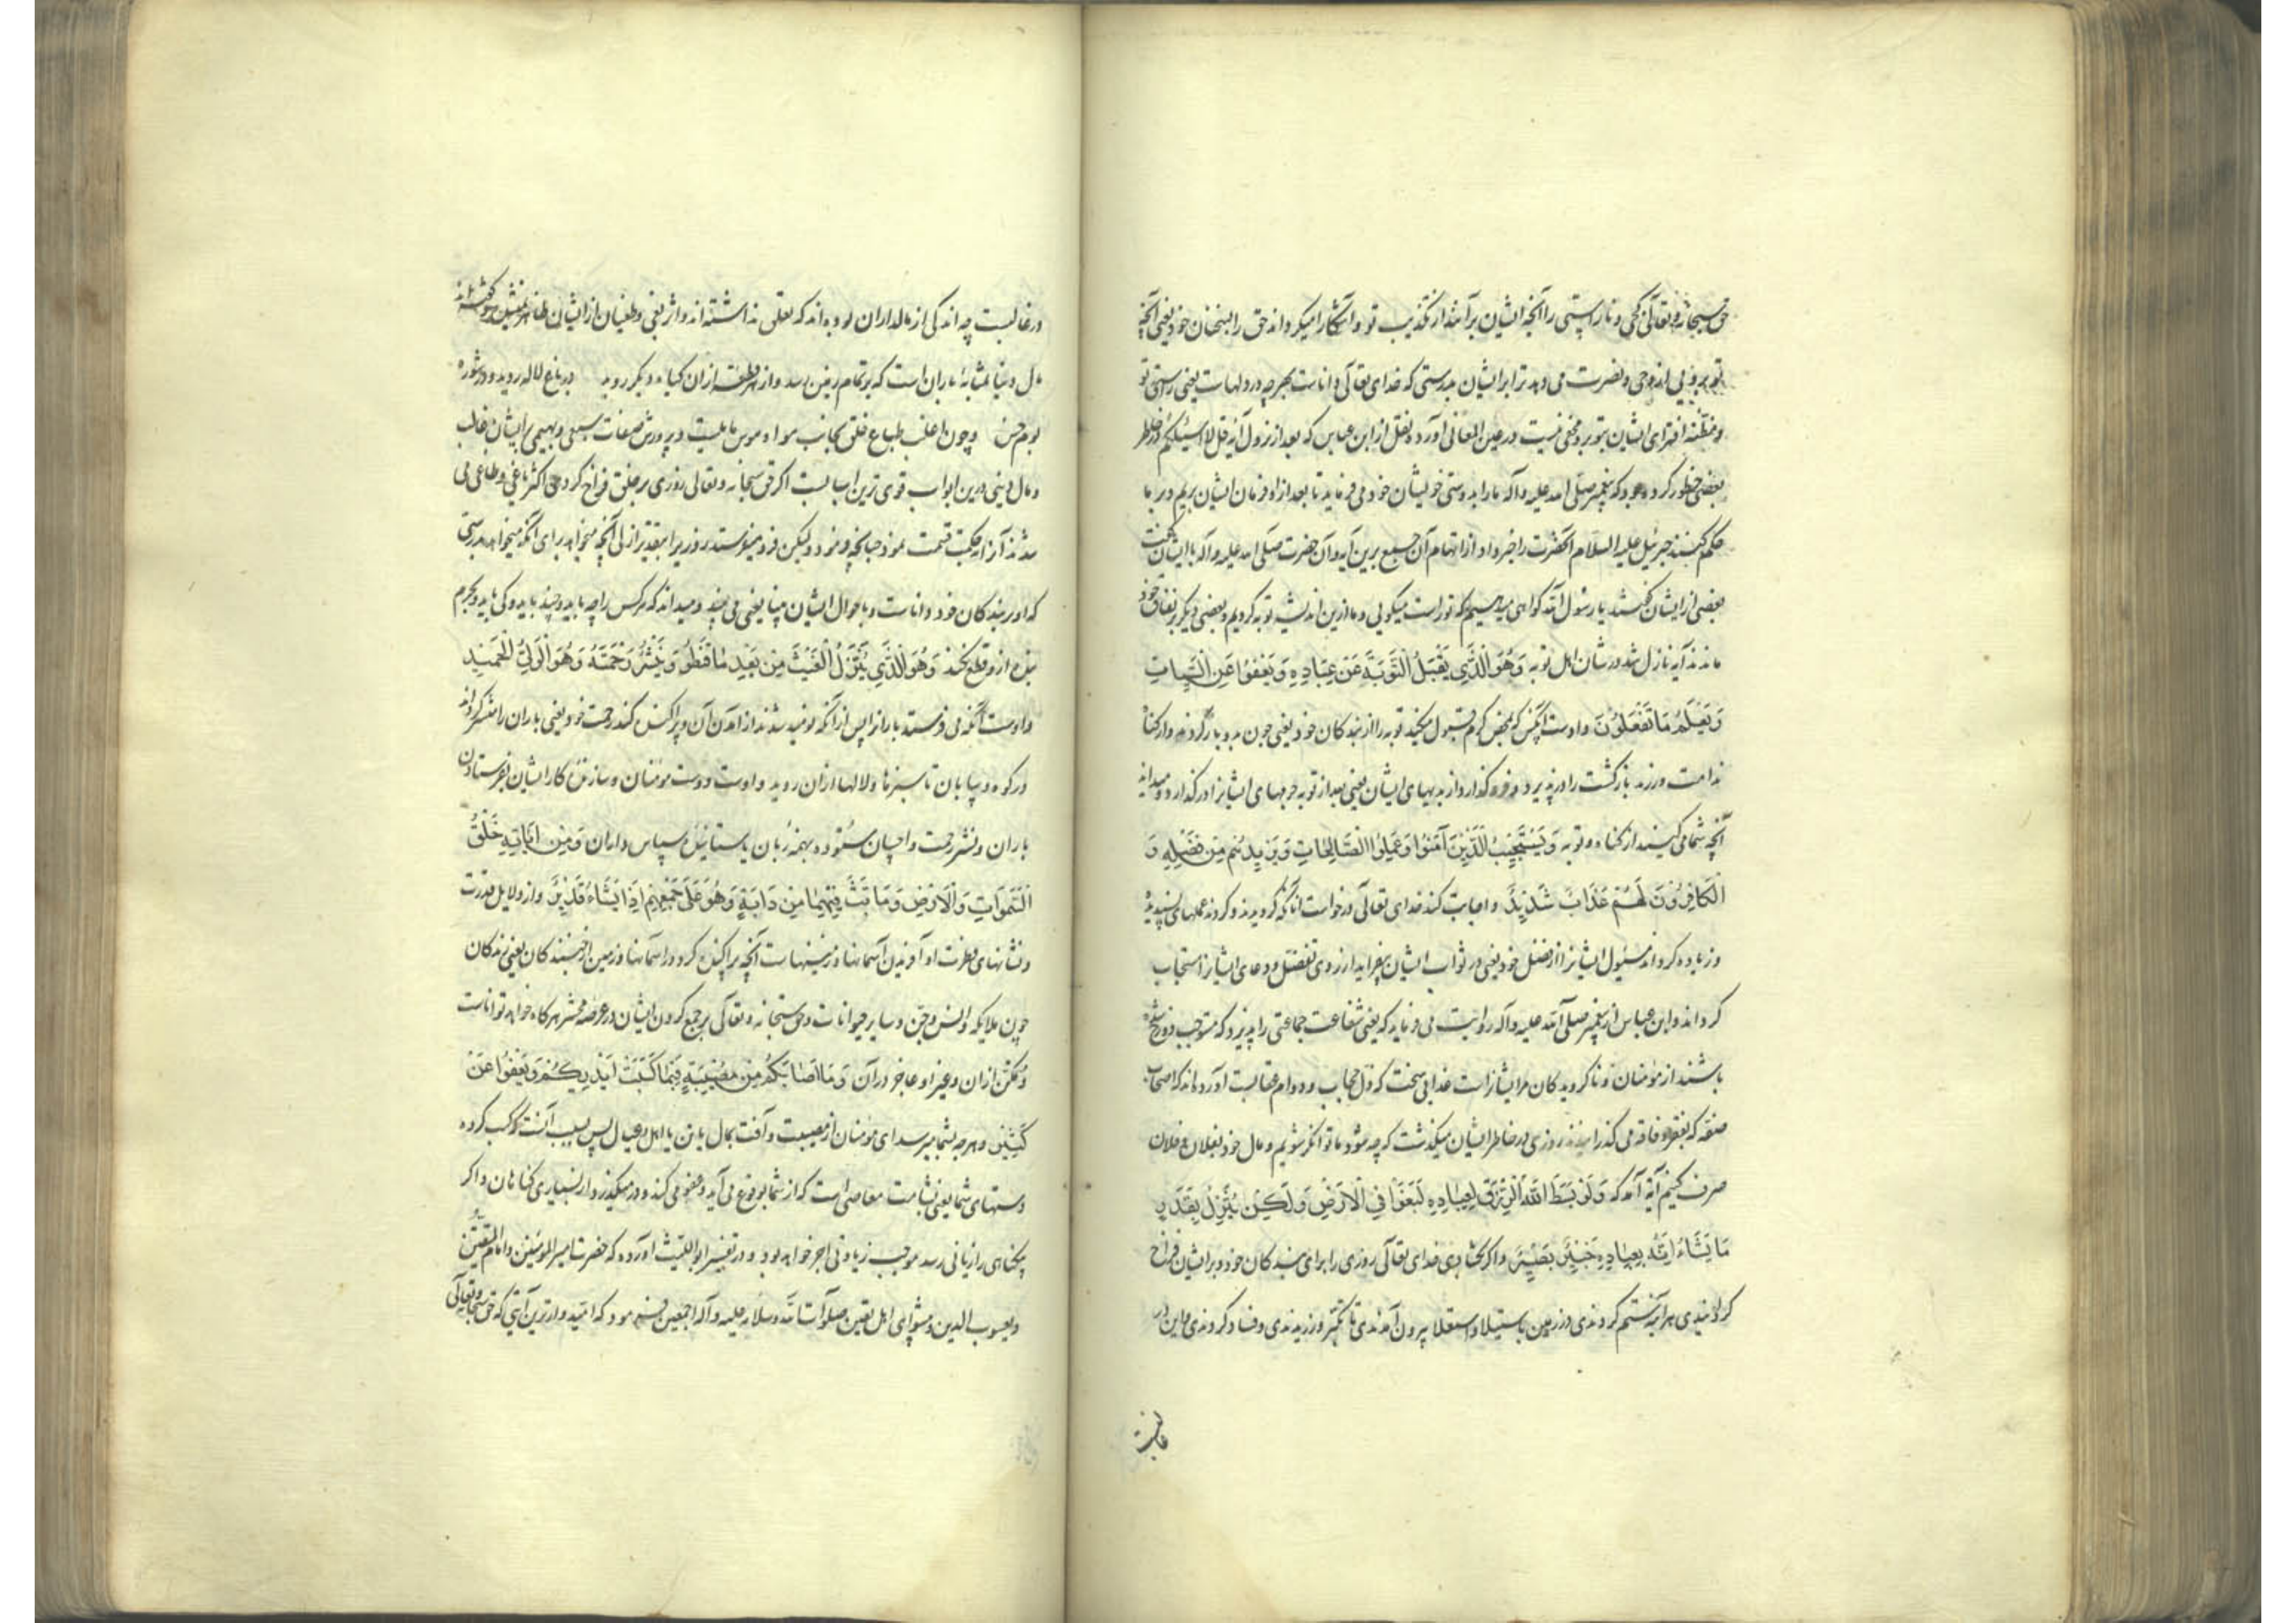 حق سبحانه و تعالی کجی و ناراستی را آنچه ایشان برآنند از تکذیب تو و آشکارا میکرداند حق را بسخنان خود یعنی آنچه
بتو از وحی و نصرت می دهد ترا بر ایشان بدرستی که خدای تعالی داناست بهر چه در دلهاست یعنی راستی تو
و مظنه افترای ایشان بتو برو مخفی نیست در عین المعانی آورده و نقل از ابن عباس که بعد از نزول آیه قل لا اسئلکم در خاطر
بعضی خطور کرده بود که پیغمبر صلی الله علیه و آله ما را بدوستی خویشان خود می فرماید تا بعد از او فرمان ایشان بریم و بر ما
حکم کنند جبرئیل علیه السلام آنحضرت را خبر داد از اتهام آن جمع برین آیه و آن حضرت صلی الله علیه و آله با ایشان گفت
بعضی از ایشان گفتند یا رسول الله کواهی میدهیم که تو راست میکویی و ما ازین اندیشه توبه کردیم و بعضی دیکر بر نفاق خود
ماندند آیه نازل شد در شان اهل توبه وَهُوَ الَّذِي يَقْبَلُ التَّوْبَةَ عَنْ عِبَادِهِ وَيَعْفُوا عَنِ السَّيِّئاتِ
وَيَعْلَمُ مَا تَفْعَلُونَ و اوست آنکس که بمحض کرم قبول میکند توبه را از بندکان خود یعنی چون بدو باز کردند و از کناه
ندامت ورزند بازکشت را در پذیرد و فرو کذارد از بدیهای ایشان یعنی بعد از توبه جرمهای ایشانرا درکذارد و میداند
آنچه شما می کنید از کناه و توبه وَيَسْتَجِيبُ الَّذِينَ آمَنُوا وَعَمِلُوا الصَّالِحَاتِ وَيَزِيدُهُمْ مِنْ فَضْلِهِ وَ
الْكَافِرُونَ لَهُمْ عَذَابٌ شَدِيدٌ و اجابت کند خدای تعالی درخواست آنانکه کرویدند و کردند عملهای پسندیده
و زیاده کرداند مسئول ایشانرا از فضل خود یعنی در ثواب ایشان بیفزاید از روی تفضل و دعای ایشانرا مستجاب
کرداند و ابن عباس از پیغمبر صلی الله علیه و آله روایت می فرماید که یعنی شفاعت جماعتی را پذیرد که مستوجب دوزخ شده
باشند از مؤمنان و ناکرویدکان مر ایشانراست عذابی سخت که ذل حجاب و دوام عقابست آورده اند که اصحاب
صفه که بفقر و فاقه می کذرانیدند روزی در خاطر ایشان میکذشت که چه شود ما توانکر شویم و مال خود بفلان و فلان
صرف کنیم آیه آمد که وَلَوْ بَسَطَ اللَّهُ الرِّزْقَ لِعِبَادِهِ لَبَغَوْا فِي الْأَرْضِ وَلَكِنْ يُنَزِّلُ بِقَدَرٍ
مَا يَشَاءُ إِنَّهُ بِعِبَادِهِ خَبِيرٌ بَصِيرٌ و اکر کشادی خدای تعالی روزی را برای بندکان خود و بر ایشان فراخ
کردانیدی هر آینه ستم کردندی در زمین باستیلا و استعلا بیرون آمدندی تا تکبر ورزیدندی و فساد کردندی و این در
غالبست
در غالبست چه اندکی از مالداران بوده اند که تعلقی نداشته اند و اثر بغی و طغیان از ایشان ظاهر نشده
مال دنیا بمثابه باران است که بر تمام زمین رسد و از هر قطعه ازان کیاه دیکر روید در باغ لاله روید و در شوره
بوم خس و چون اغلب طباع خلق بجانب هوا و هوس مایلست و پرورش صفات سبعی و بهیمی بر ایشان غالب
و مال دنیا درین ابواب قوی ترین اسبابست اکر حق سبحانه و تعالی روزی بر خلق فراخ کردی اکثر باغی و طاغی می
شدند آنرا بحکمت قسمت نمود چنانچه فرمود ولیکن فرو میفرستد روزیرا بتقدیر ازلی آنچه میخواهد برای آنکه میخواهد بدرستی
که او ببندکان خود داناست و باحوال ایشان بینا یعنی می بیند و میداند که هر کس را چه باید و چند باید و کی باید و بجرم
بنده ازو قطع نکند وَهُوَ الَّذِي يُنَزِّلُ الْغَيْثَ مِنْ بَعْدِ مَا قَنَطُوا وَيَنْشُرُ رَحْمَتَهُ وَهُوَ الْوَلِيُّ الْحَمِيدُ
و اوست آنکه می فرستد بارانرا پس از آنکه نومید شدند از آمدن آن و پراکنده کند رحمت خود یعنی باران را منتشر کرداند
در کوه و بیابان تا سبزها و لالها ازان روید و اوست دوست مؤمنان و سازنده کار ایشان بفرستادن
باران و نشر رحمت و احسان ستوده بهمه زبان یا ستاینده سپاس داران وَمِنْ آيَاتِهِ خَلْقُ
السَّمَوَاتِ وَالْأَرْضِ وَمَا بَثَّ فِيهِمَا مِنْ دَابَّةٍ وَهُوَ عَلَى جَمْعِهِمْ إِذَا يَشَاءُ قَدِيرٌ و از دلایل قدرت
و نشانهای فطرت او آفریدن آسمانها و زمینهاست آنچه پراکنده کرد در آسمانها و زمین از جنبندکان یعنی زندکان
چون ملایکه و انس و جن و سایر حیوانات و حق سبحانه و تعالی بر جمع کردن ایشان در عرصه محشر هرکاه خواهد تواناست
و ممکن ازان و غیر او عاجز در آن وَمَا أَصَابَكُمْ مِنْ مُصِيبَةٍ فَبِمَا كَسَبَتْ أَيْدِيكُمْ وَيَعْفُوا عَنْ
كَثِيرٍ و هر چه بشما میرسد ای مؤمنان از مصیبت و آفت بمال یا تن یا اهل و عیال پس بسبب آنست که کسب کرده
دستهای شما یعنی بشامت معاصی است که از شما بوقوع می آید و عفو می کند و در میکذرد از بسیاری کناهان و اکر
بیکناهی را زیانی رسد موجب زیادتی اجر خواهد بود و در تفسیر ابو اللیث آورده که حضرت امیر المؤمنین و امام المتقین
و یعسوب الدین و پیشوای اهل یقین صلوات الله و سلامه علیه و آله اجمعین فرمود که امیدوارترین آیتی که حق سبحانه و تعالی